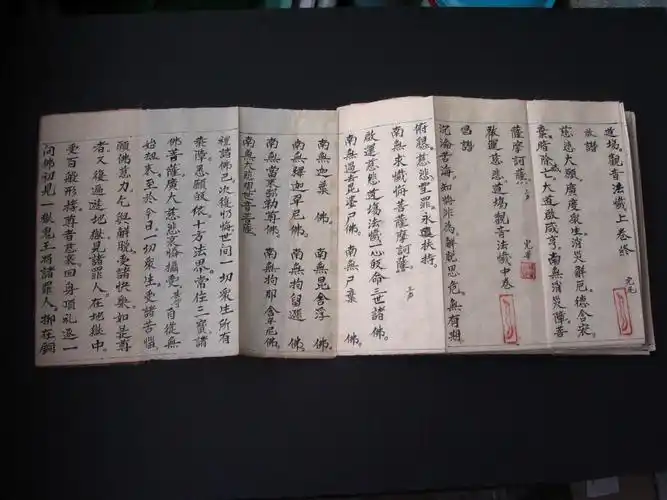 道場觀音法懺上卷終
放讚
慈悲大願廣度衆生消災解厄德合宏
冥時除亡大道啟咸亨南無消災障菩
薩摩訶薩
啟運慈悲道場觀音法懺中卷
唱讚
沉淪苦海知悔非為解脫思危無有期
俯聽慈悲聖罪永遠扶持
南無求懺悔菩薩摩訶薩
啟運慈悲道場法懺一心皈命三世諸佛
南無過去毘婆尸佛南無尸棄佛
南無毘舍浮佛
南無迦葉佛南無拘留遜佛
南無釋迦牟尼佛南無拘那含牟尼佛
南無當來彌勒尊佛
南無大慈觀世音菩薩
禮諸佛已次復懺悔世間一切衆生所有
業障悉願皈依十方法界常住三寶諸
佛菩薩廣大慈悲哀愍攝受某等自從無
始劫來至於今日一切衆生受諸苦惱
願佛慈力乞與解脫受諸快樂如是尊
者又復遍遊地獄見諸罪人在地獄中
受百般形搒尊者悲哀回身頂礼退一
問佛初見一獄鬼王將諸罪人梆在銅